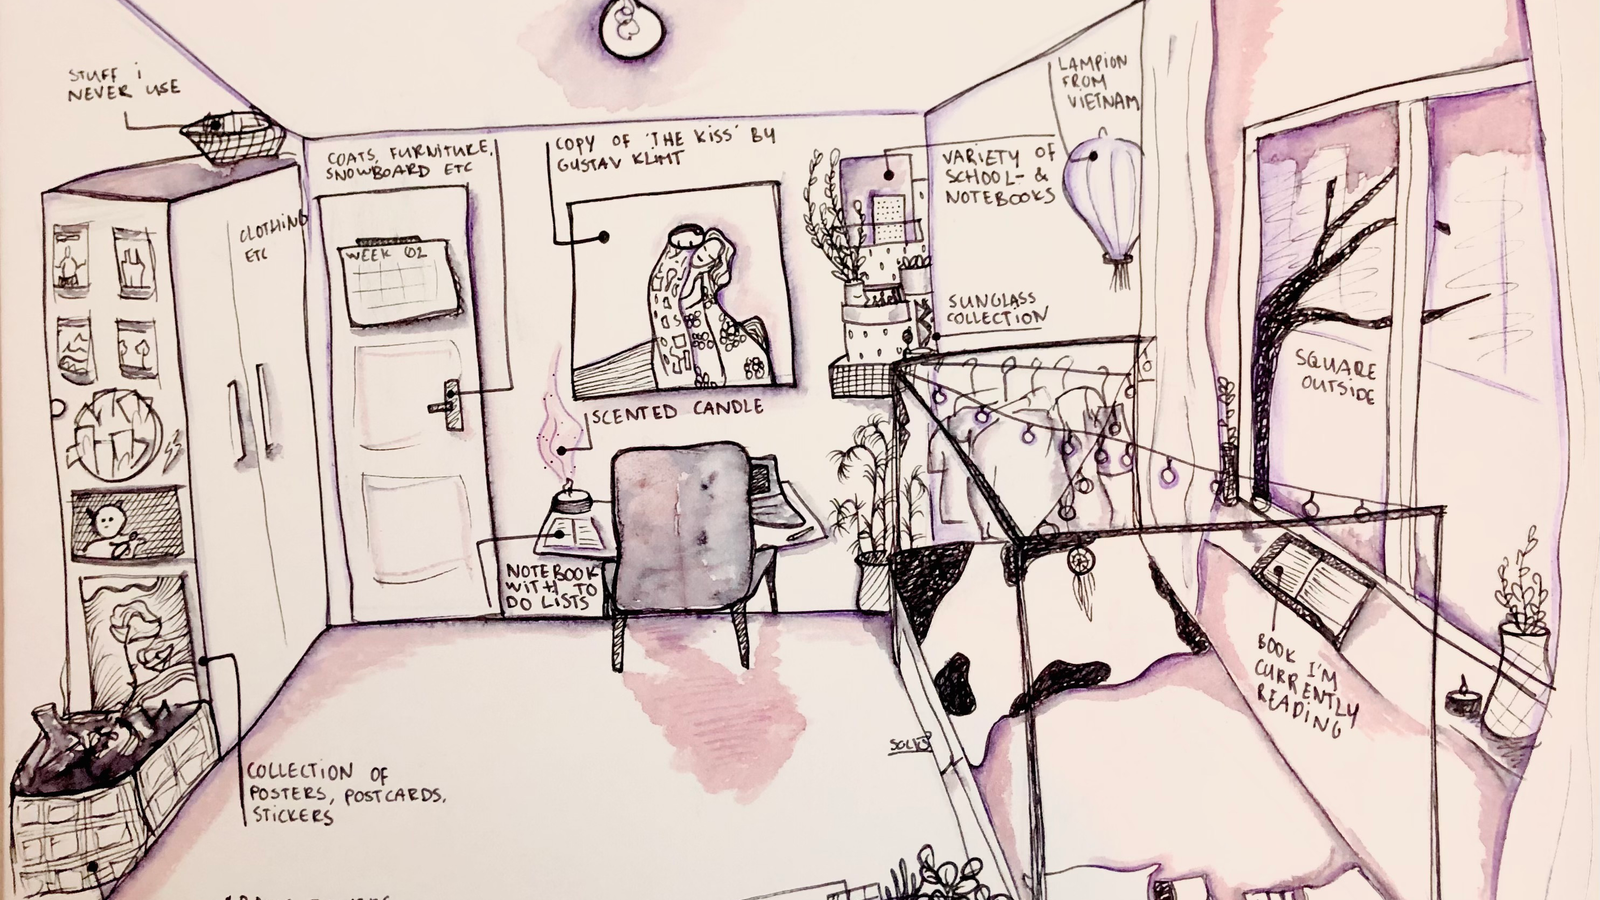 STUFF i
NEVER USE
COATS, FURNITURE,
SNOWBOARD ETC
COPY OF 'THE KISS' BY
GUSTAV KLIMT
LAMPION
FROM
VIETNAM
VARIETY OF
SCHOOL- &
NOTEBOOKS
CLOTHING
ETC
WEEK 02
SUNGLASS
COLLECTION
SQUARE
OUTSIDE
SCENTED CANDLE
NOTEBOOK
WITH TO
DO LISTS
BOOK I'M
CURRENTLY
READING
COLLECTION OF
POSTERS, POSTCARDS,
STICKERS